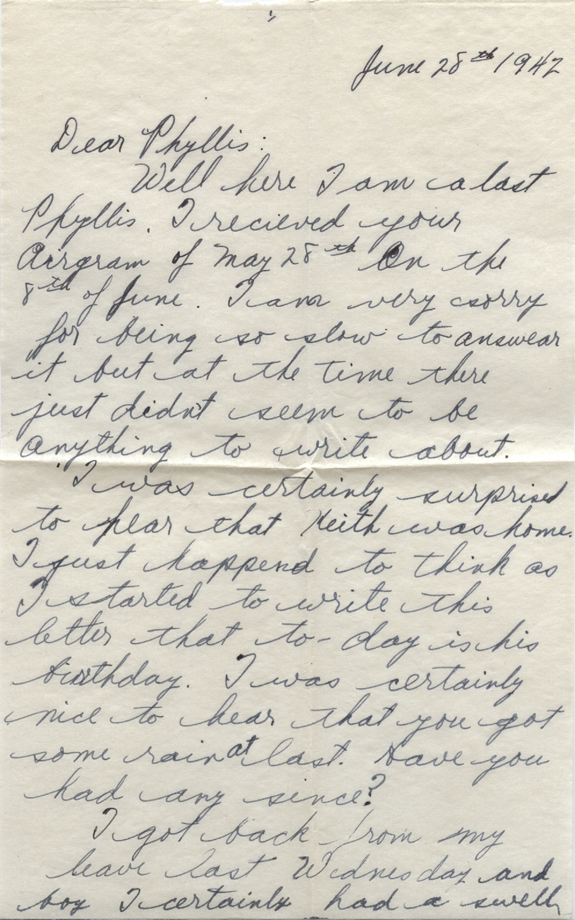 June 28th 1942
Dear Phyllis:
Well here I am a last
Phyllis. I recieved your
Airgram of May 28th On the
8th of June. I am very sorry
for being so slow to answear
it but at the time there
just didn't seem to be
anything to write about.
I was certainly surprised
to hear that Keith was home.
I just happend to think as
I started to write this
letter that to-day is his
birthday. I was certainly
nice to hear that you got
some rain at last. Have you
had any since?
I got back from my
leave last Wednesday and
boy I certainly had a swell